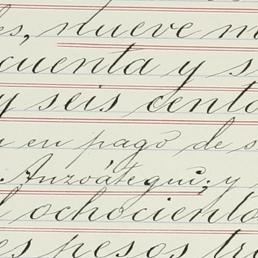 es, nueve m
cuenta y s
y seis centa
y en pago de s
Anzoátegui; y
l ochociento
es pesos tre